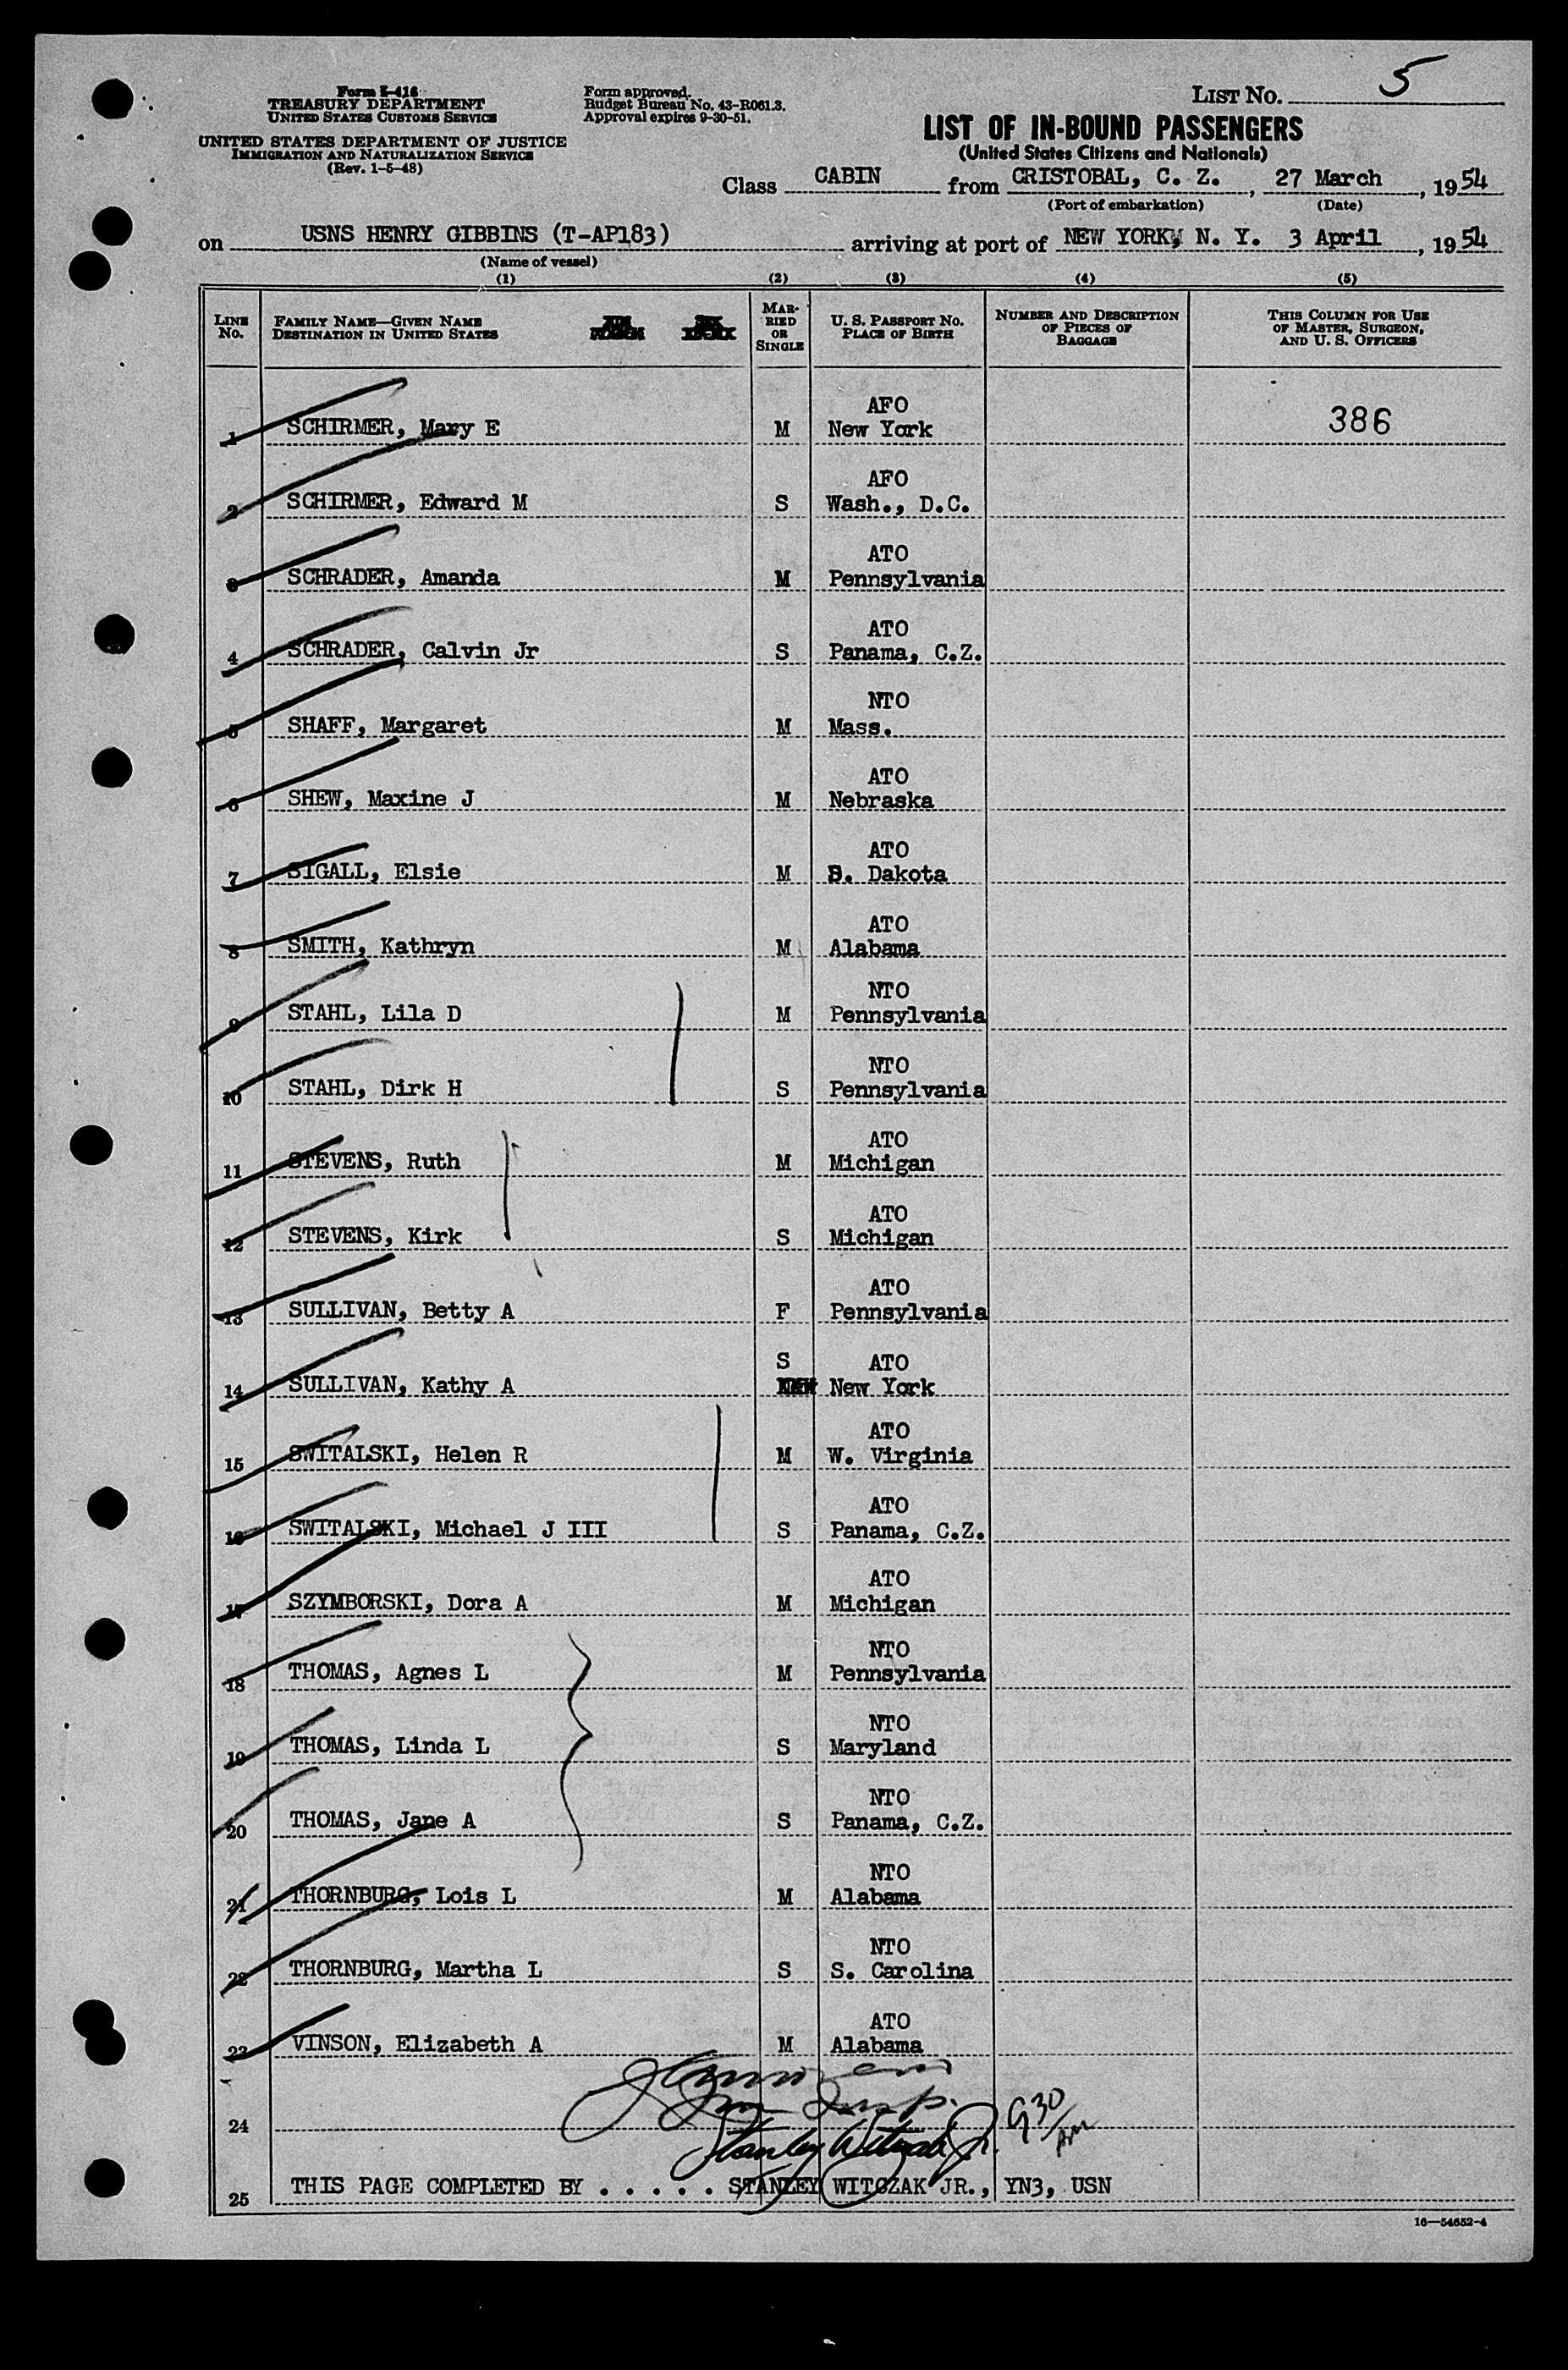 Form I-416
TREASURY DEPARTMENT
UNITED STATES CUSTOMS SERVICE
UNITED STATES DEPARTMENT OF JUSTICE
IMMIGRATION AND NATURALIZATION SERVICE
(Rev. 1-5-48)
Form approved.
Budget Bureau No. 43-R061.3.
Approval expires 9-30-51.
LIST No. 5
LIST OF IN-BOUND PASSENGERS
(United States Citizens and Nationals)
Class CABIN from CRISTOBAL, C. Z., 27 March, 1954
(Port of embarkation) (Date)
on USNS HENRY GIBBINS (T-AP183) arriving at port of NEW YORK, N. Y. 3 April, 1954
(Name of vessel)
(1) (2) (3) (4) (5)
LINE No. FAMILY NAME—GIVEN NAME DESTINATION IN UNITED STATES MARRIED OR SINGLE U. S. PASSPORT No. PLACE OF BIRTH NUMBER AND DESCRIPTION OF PIECES OF BAGGAGE THIS COLUMN FOR USE OF MASTER, SURGEON, AND U. S. OFFICERS
AFO
1 SCHIRMER, Mary E M New York 386
AFO
2 SCHIRMER, Edward M S Wash., D.C.
ATO
3 SCHRADER, Amanda M Pennsylvania
ATO
4 SCHRADER, Calvin Jr S Panama, C.Z.
NTO
5 SHAFF, Margaret M Mass.
ATO
6 SHEW, Maxine J M Nebraska
ATO
7 SIGALL, Elsie M S. Dakota
ATO
8 SMITH, Kathryn M Alabama
NTO
9 STAHL, Lila D M Pennsylvania
NTO
10 STAHL, Dirk H S Pennsylvania
ATO
11 STEVENS, Ruth M Michigan
ATO
12 STEVENS, Kirk S Michigan
ATO
13 SULLIVAN, Betty A F Pennsylvania
S ATO
14 SULLIVAN, Kathy A New York
ATO
15 SWITALSKI, Helen R M W. Virginia
ATO
16 SWITALSKI, Michael J III S Panama, C.Z.
ATO
17 SZYMBORSKI, Dora A M Michigan
NTO
18 THOMAS, Agnes L M Pennsylvania
NTO
19 THOMAS, Linda L S Maryland
NTO
20 THOMAS, Jane A S Panama, C.Z.
NTO
21 THORNBURG, Lois L M Alabama
NTO
22 THORNBURG, Martha L S S. Carolina
ATO
23 VINSON, Elizabeth A M Alabama
Imm Insp.
24 Stanley Witczak Jr. 930 AM
25 THIS PAGE COMPLETED BY . . . . . STANLEY WITCZAK JR., YN3, USN
16—54652-4